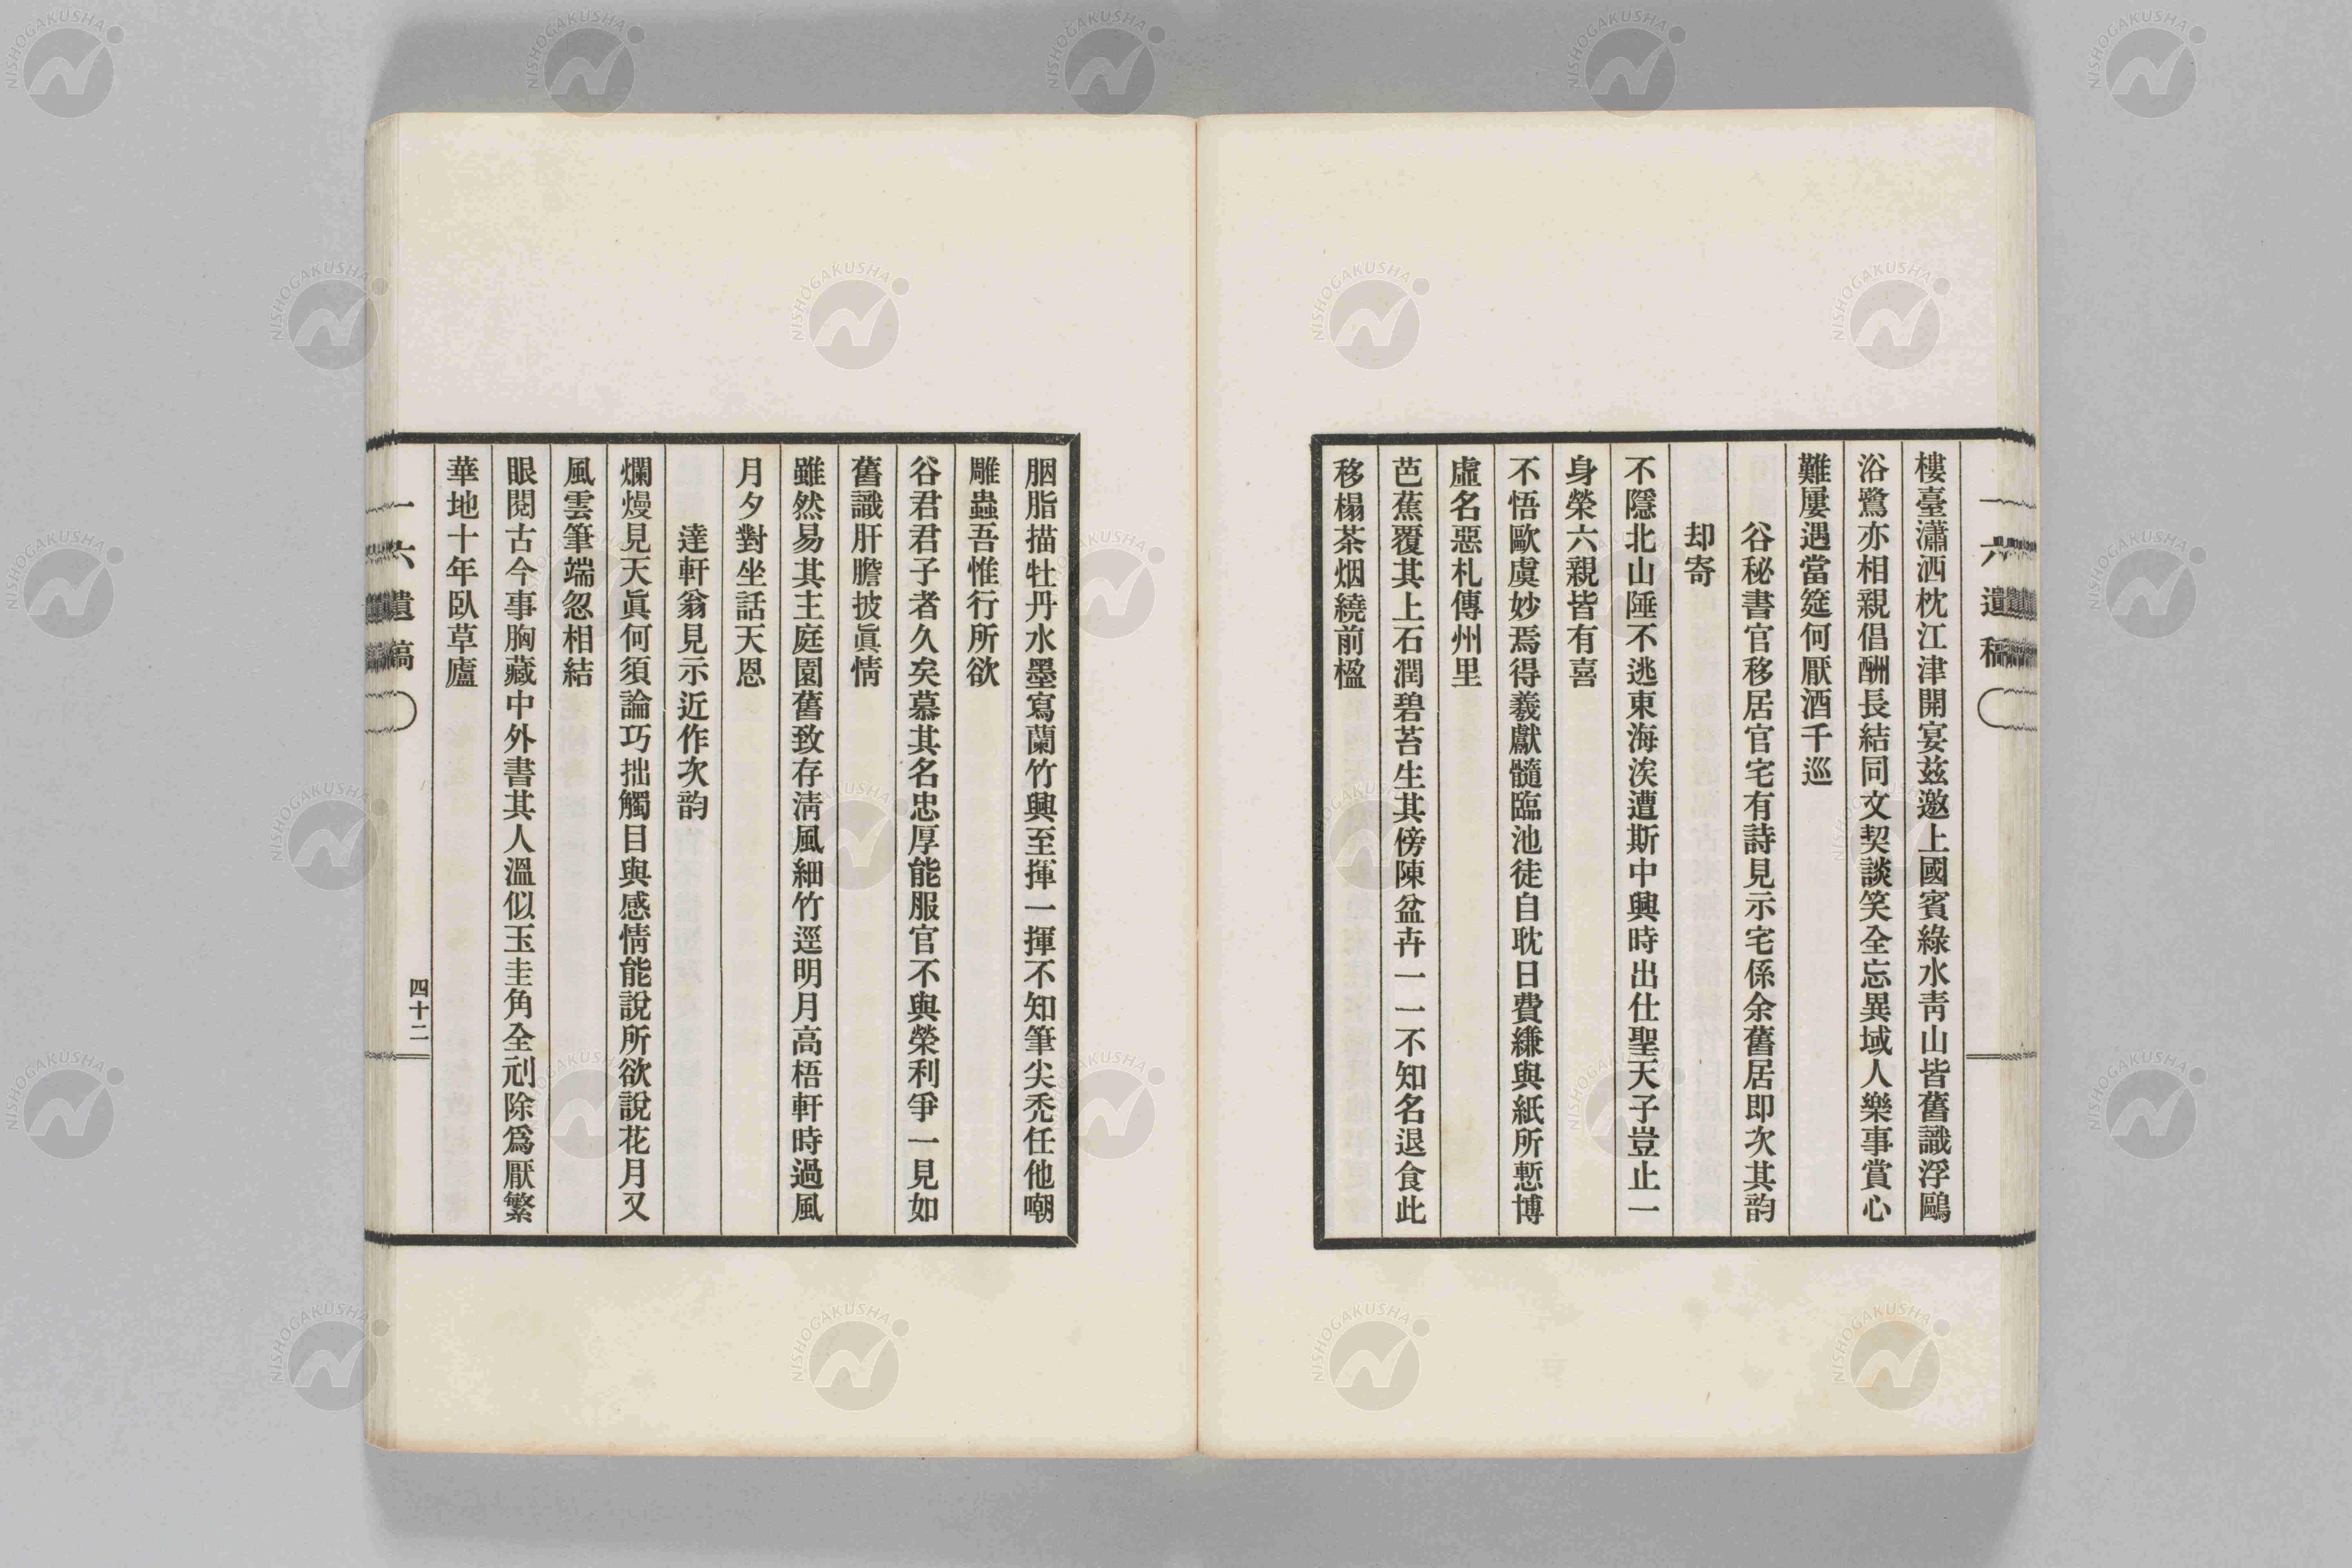 一六遺稿
樓臺瀟洒枕江津開宴茲邀上國賓綠水靑山皆舊識浮鷗
浴鷺亦相親倡酬長結同文契談笑全忘異域人樂事賞心
難屢遇當筵何厭酒千巡
谷秘書官移居官宅有詩見示宅係余舊居即次其韵
却寄
不隱北山陲不逃東海涘遭斯中興時出仕聖天子豈止一
身榮六親皆有喜
不悟歐虞妙焉得羲獻髓臨池徒自耽日費縑與紙所慙博
虛名惡札傳州里
芭蕉覆其上石潤碧苔生其傍陳盆卉一一不知名退食此
移榻茶烟繞前楹
胭脂描牡丹水墨寫蘭竹興至揮一揮不知筆尖禿任他嘲
雕蟲吾惟行所欲
谷君君子者久矣慕其名忠厚能服官不與榮利爭一見如
舊識肝膽披眞情
雖然易其主庭園舊致存淸風細竹逕明月高梧軒時過風
月夕對坐話天恩
達軒翁見示近作次韵
爛熳見天眞何須論巧拙觸目與感情能說所欲說花月又
風雲筆端忽相結
眼閱古今事胸藏中外書其人溫似玉圭角全刓除爲厭繁
華地十年臥草廬
一六遺稿
四十二
NISHOGAKUSHA